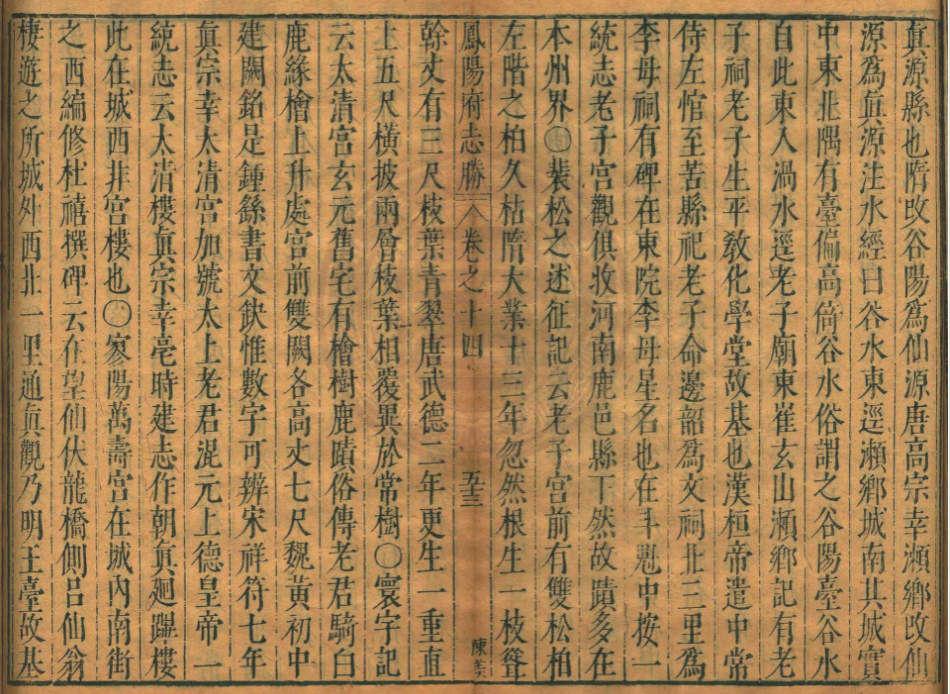 眞源縣也隋改谷陽爲仙源唐高宗幸瀨鄉改仙
源爲眞源注水經曰谷水東逕瀨鄉城南其城實
中東北隅有臺偏高倚谷水俗謂之谷陽臺谷水
自此東入渦水逕老子廟東崔玄山瀨鄉記有老
子祠老子生平敎化學堂故基也漢桓帝遣中常
侍左悺至苦縣祀老子命邊韶爲文祠北三里爲
李母祠有碑在東院李母星名也在斗魁中按一
統志老子宮觀俱收河南鹿邑縣下然故蹟多在
本州界〇裴松之述征記云老子宮前有雙松柏
左階之柏久枯隋大業十三年忽然根生一枝聳
鳳陽府志勝 卷之十四 五十三 陳
幹丈有三尺枝葉青翠唐武德二年更生一重直
上五尺橫披兩層枝葉相覆異於常樹〇寰宇記
云太清宮玄元舊宅有檜樹鹿蹟俗傳老君騎白
鹿緣檜上升處宮前雙闕各高丈七尺魏黃初中
建闕銘是鍾繇書文缺惟數字可辨宋祥符七年
眞宗幸太清宮加號太上老君混元上德皇帝一
統志云太清樓眞宗幸亳時建志作朝眞廻蹕樓
此在城西非宮樓也〇蒙陽萬壽宮在城內南街
之西編修杜禧撰碑云在望仙伏龍橋側呂仙翁
棲遊之所城外西北一里通眞觀乃明王臺故基